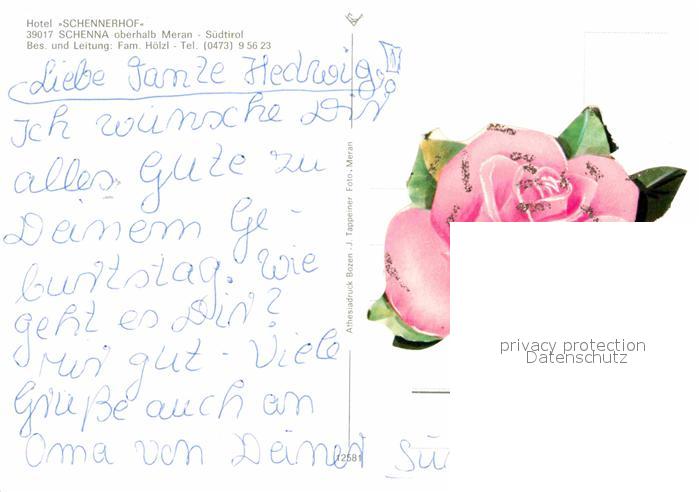 Hotel »SCHENNERHOF«
39017 SCHENNA oberhalb Meran - Südtirol
Bes. und Leitung: Fam. Hölzl - Tel. (0473) 9 56 23
Liebe Tante Hedwig,
Ich wünsche Dir
alles Gute zu
Deinem Ge-
burtstag. Wie
geht es Dir?
Mir gut - Viele
Grüße auch an
Oma von Deiner
Athesiadruck Bozen - J. Tappeiner Foto, Meran
12581
privacy protection
Datenschutz